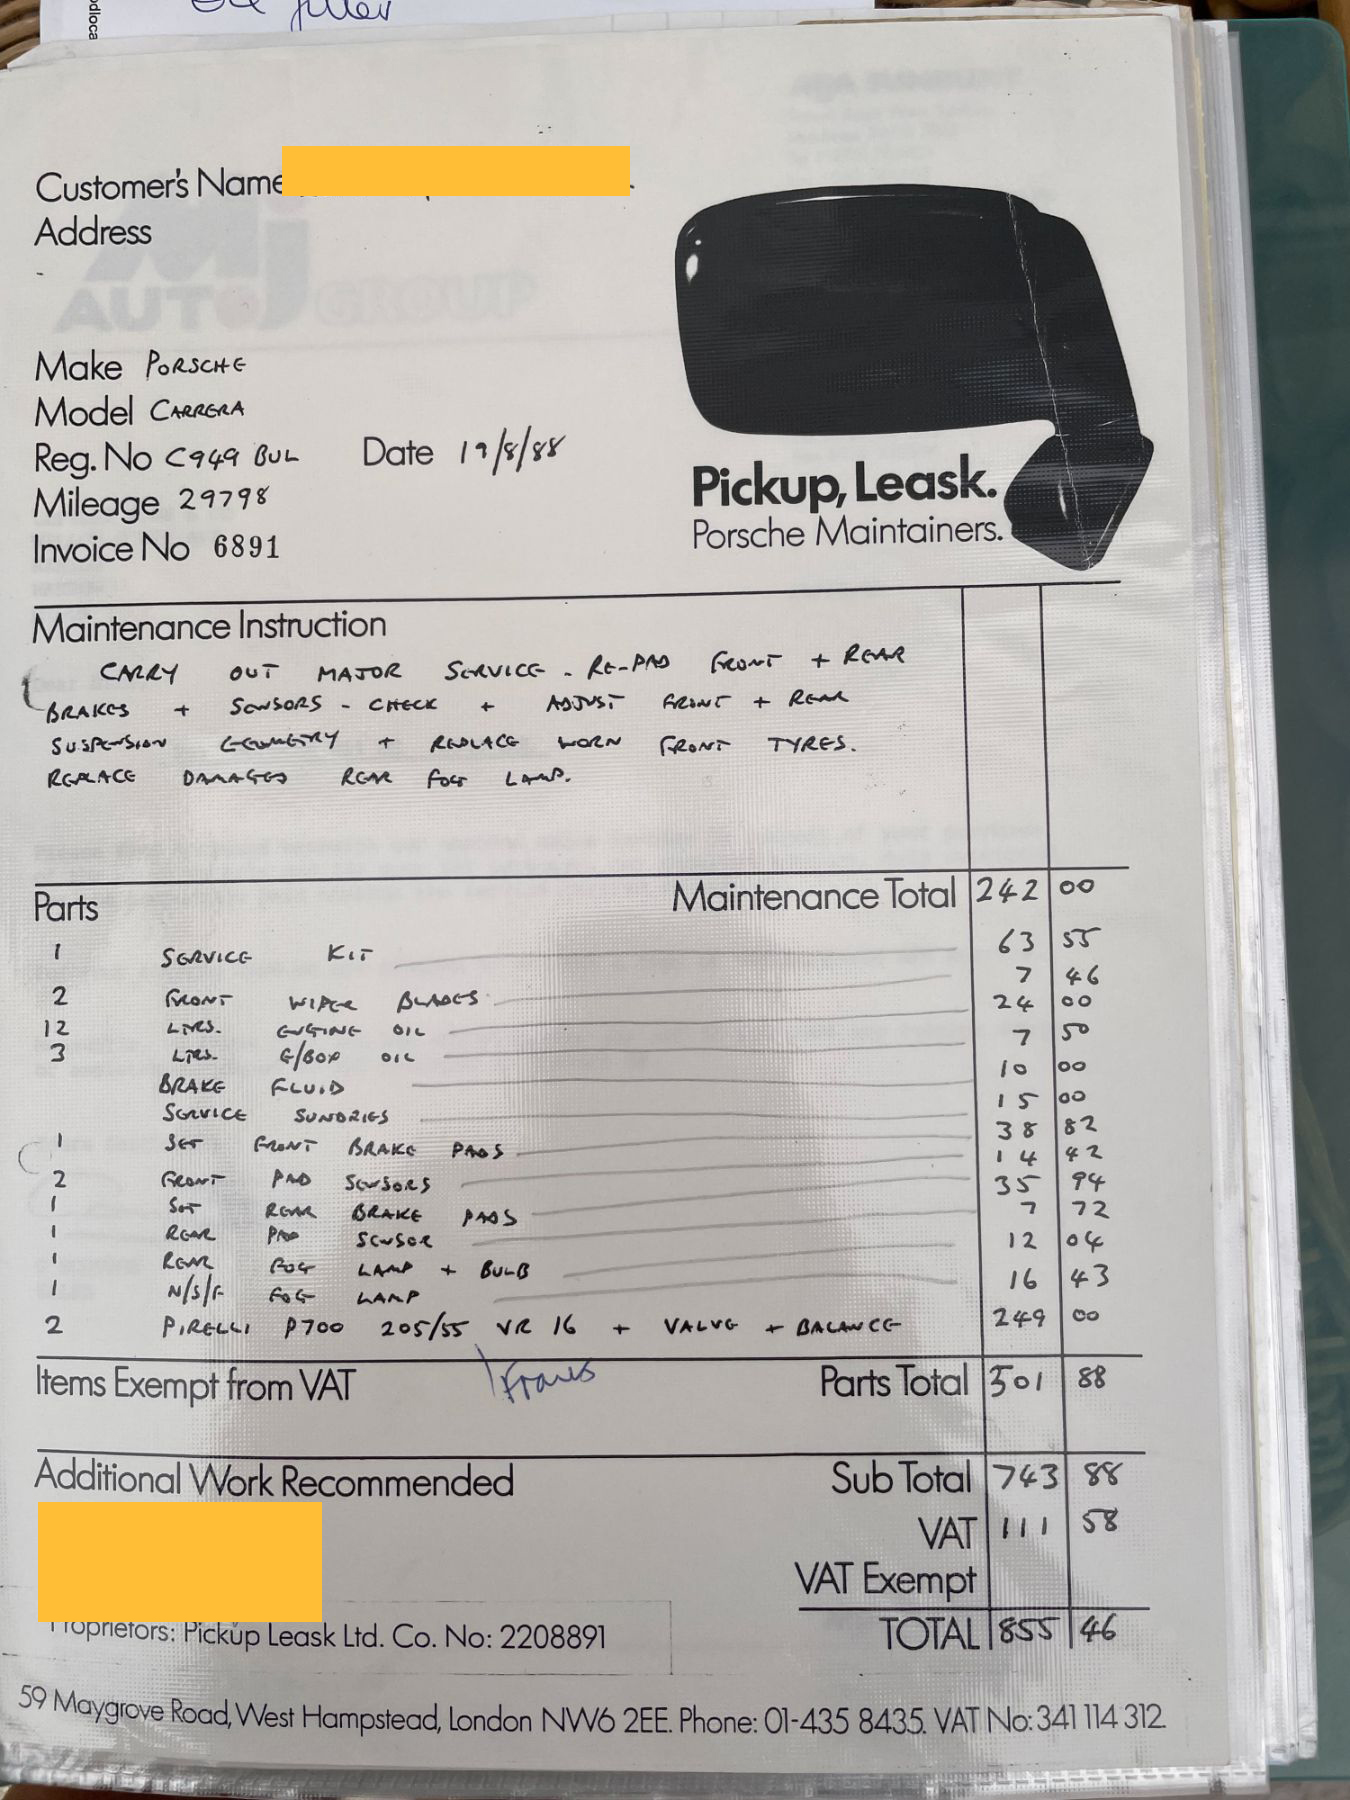 Customer's Name
Address
Make PORSCHE
Model CARRERA
Reg. No C949 BUL Date 19/8/88
Mileage 29798
Invoice No 6891
Pickup, Leask.
Porsche Maintainers.
Maintenance Instruction
CARRY OUT MAJOR SERVICE - RE-PAD FRONT + REAR
BRAKES + SENSORS - CHECK + ADJUST FRONT + REAR
SUSPENSION GEOMETRY + REPLACE WORN FRONT TYRES.
REPLACE DAMAGED REAR FOG LAMP.
Parts Maintenance Total 242 00
1 SERVICE KIT 63 55
2 FRONT WIPER BLADES 7 46
12 LTRS. ENGINE OIL 24 00
3 LTRS. G/BOX OIL 7 50
BRAKE FLUID 10 00
SERVICE SUNDRIES 15 00
1 SET FRONT BRAKE PADS 38 82
2 FRONT PAD SENSORS 14 42
1 SET REAR BRAKE PADS 35 94
1 REAR PAD SENSOR 7 72
1 REAR FOG LAMP + BULB 12 04
1 N/S/F FOG LAMP 16 43
2 PIRELLI P700 205/55 VR 16 + VALVE + BALANCE 249 00
Items Exempt from VAT Parts Total 501 88
Additional Work Recommended Sub Total 743 88
VAT 111 58
VAT Exempt
TOTAL 855 46
Proprietors: Pickup Leask Ltd. Co. No: 2208891
59 Maygrove Road, West Hampstead, London NW6 2EE. Phone: 01-435 8435. VAT No: 341 114 312